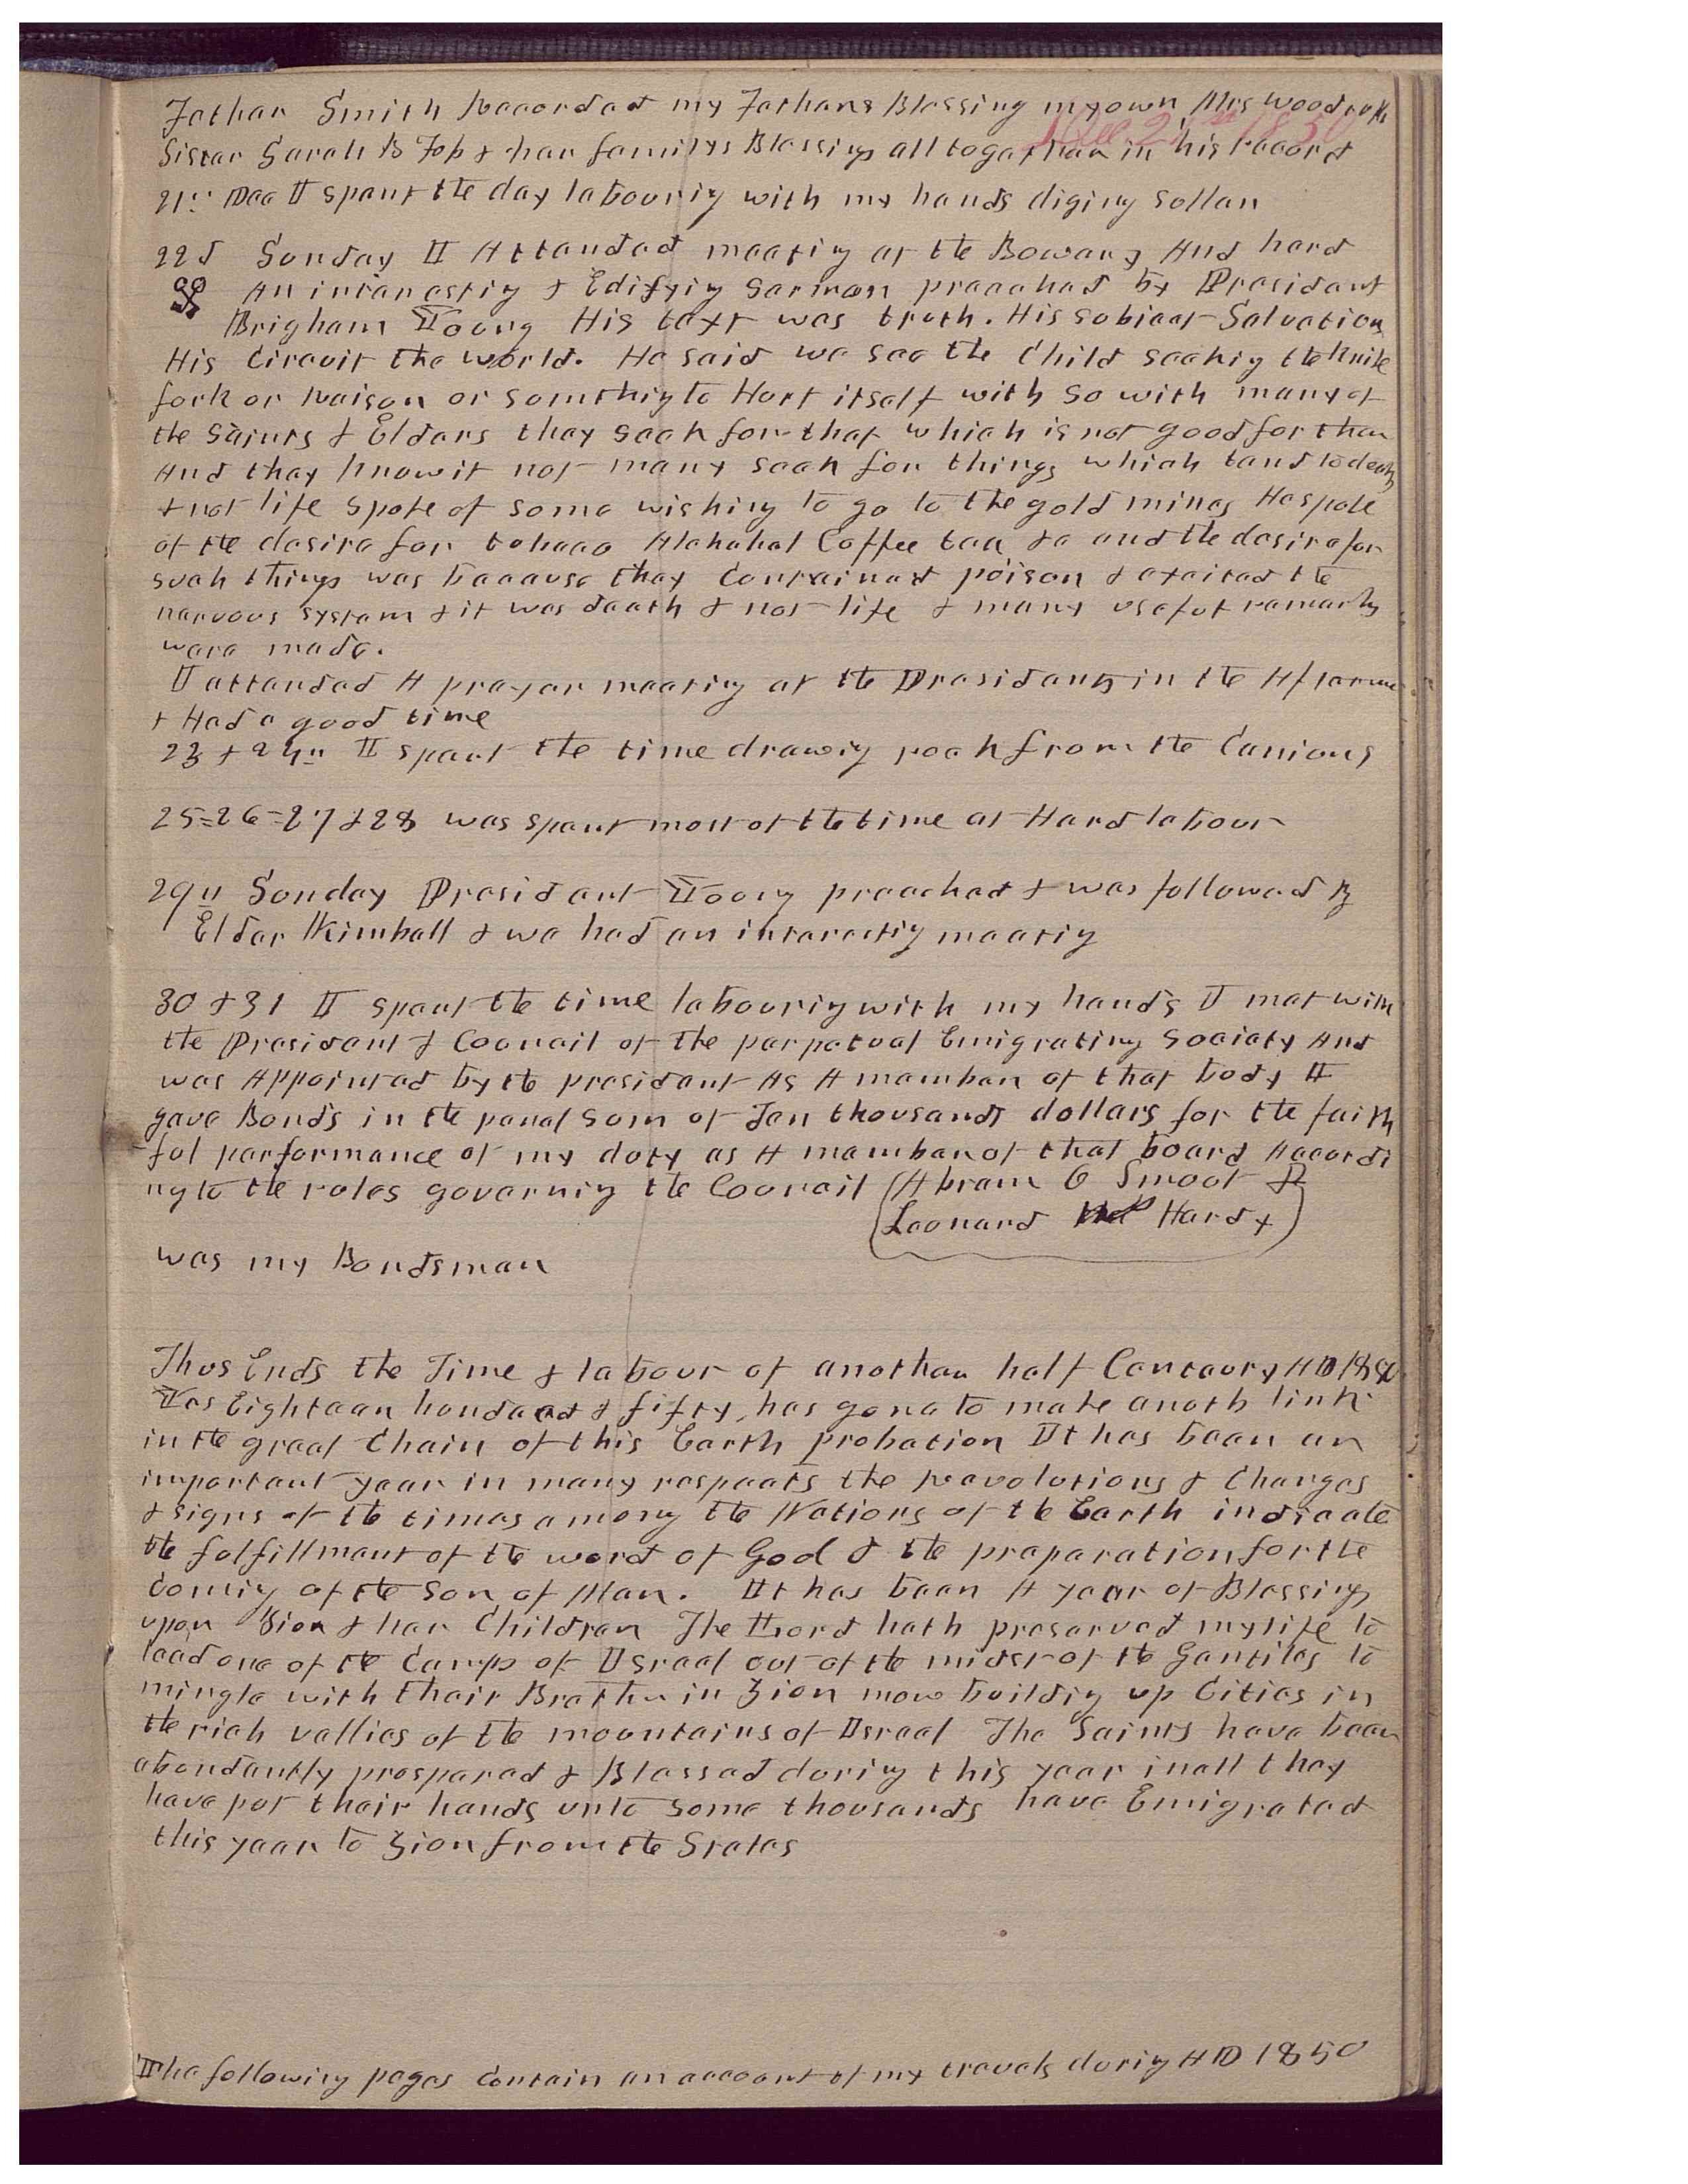 Father Smith Recorded my Fathers Blessing my own Mrs Woodruffs
Dec 21st 1850
Sister Sarah B Foss & her familys Blessings all together in his Record
21st Dec I spent the day labouring with my hands diging sellar
22d Sunday I Attended meeting at the Bowery And herd
An interesting & Edifying sermon preached by President
Brigham Young His text was truth. His subject Salvation
His Circuit the world. He said we see the Child seeking the knife
fork or Raison or somthing to Hurt itself with so with many of
the Saints & Elders they seek for that which is not good for them
And they know it not many seek for things which tend to death
& not life spoke of some wishing to go to the gold mines He spoke
of the desire for tobacco Alchohol Coffee tea &c and the desire for
such things was because they Contained poison & excited the
nervous system & it was death & not life & many useful remarks
were made.
I attended A prayer meeting at the Presidents in the Afternoon
& Had a good time
23 & 24th I spent the time drawing rock from the Canions
25=26=27 & 28 was spent most of the time at Hard labour
29th Sunday President Young preached & was followed By
Elder Kimball & we had an interesting meeting
30 & 31 I spent the time labouring with my hands I met with
the President & Council of the perpetual Emigrating Society And
was Appointed by the president As A member of that body I
gave Bonds in the penal sum of Ten thousands dollars for the faith
-ful performance of my duty as A member of that board Accordi
ng to the rules governing the Council (Abram O Smoot &
Leonard W Hardy)
was my Bondsman
Thus Ends the Time & labour of another half Centaury AD 1850
Yes Eighteen hundred & fifty, has gone to make anoth link
in the great Chain of this Earth probation It has been an
important year in many respects the revolutions & Changes
& signs of the times among the Nations of the Earth indicate
the fulfillment of the word of God & the preparation for the
coming of the Son of Man. It has been A year of Blessings
upon Zion & her Children The Lord hath preserved my life to
lead one of the Camps of Israel out of the midst of the Gentiles to
mingle with their Brethren in Zion now building up Cities in
the rich vallies of the mountains of Israel The Saints have been
abundantly prospered & Blessed during this year in all they
have put their hands unto some thousands have Emigrated
this year to Zion from the States
The following pages Contain an account of my travels during AD 1850